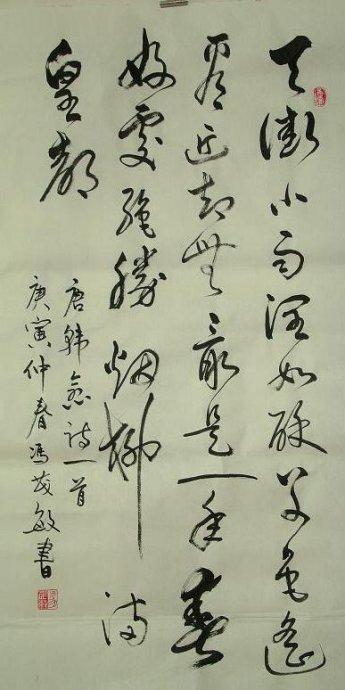 天街小雨润如酥草色遥
看近却无最是一年春
好处绝胜烟柳满
皇都
唐韩愈诗一首
庚寅仲春冯茂敏书